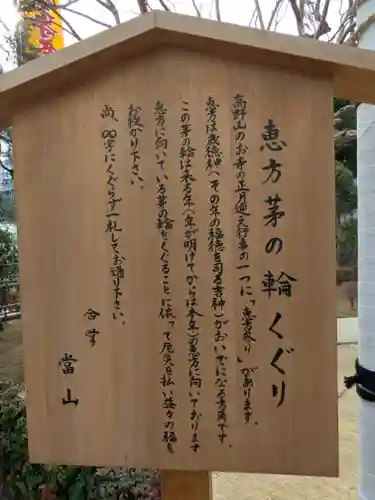 恵方茅の輪くぐり
高野山のお寺の正月迎え行事の一つに「恵方参り」があります。
恵方は歳徳神(その年の福徳を司る吉神)がおいでになる方角です。
この茅の輪は来る年(年が明けてからは本年)の恵方に向いております
恵方に向いている茅の輪をくぐることに依って厄災を払い益々の福を
お授かり下さい。
尚、8の字にくぐらず一礼してお通り下さい。
合掌
當山